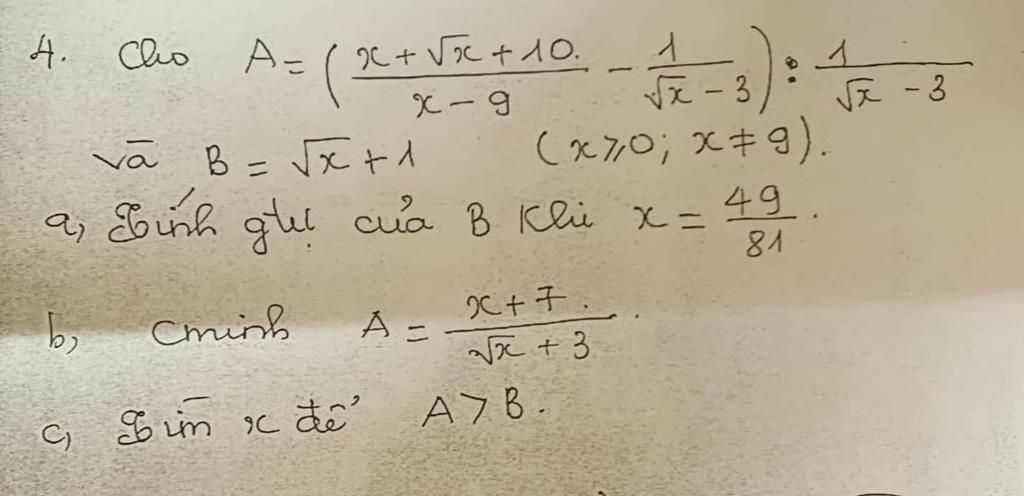 4. Cho A = ( (x + √x + 10.)/(x - 9) - 1/(√x - 3) ) : 1/(√x - 3)
và B = √x + 1 (x ⩾ 0; x ≠ 9).
a, Tính gtrị của B khi x = 49/81.
b, Cminh A = (x + 7.)/(√x + 3).
c, Tìm x để A > B.